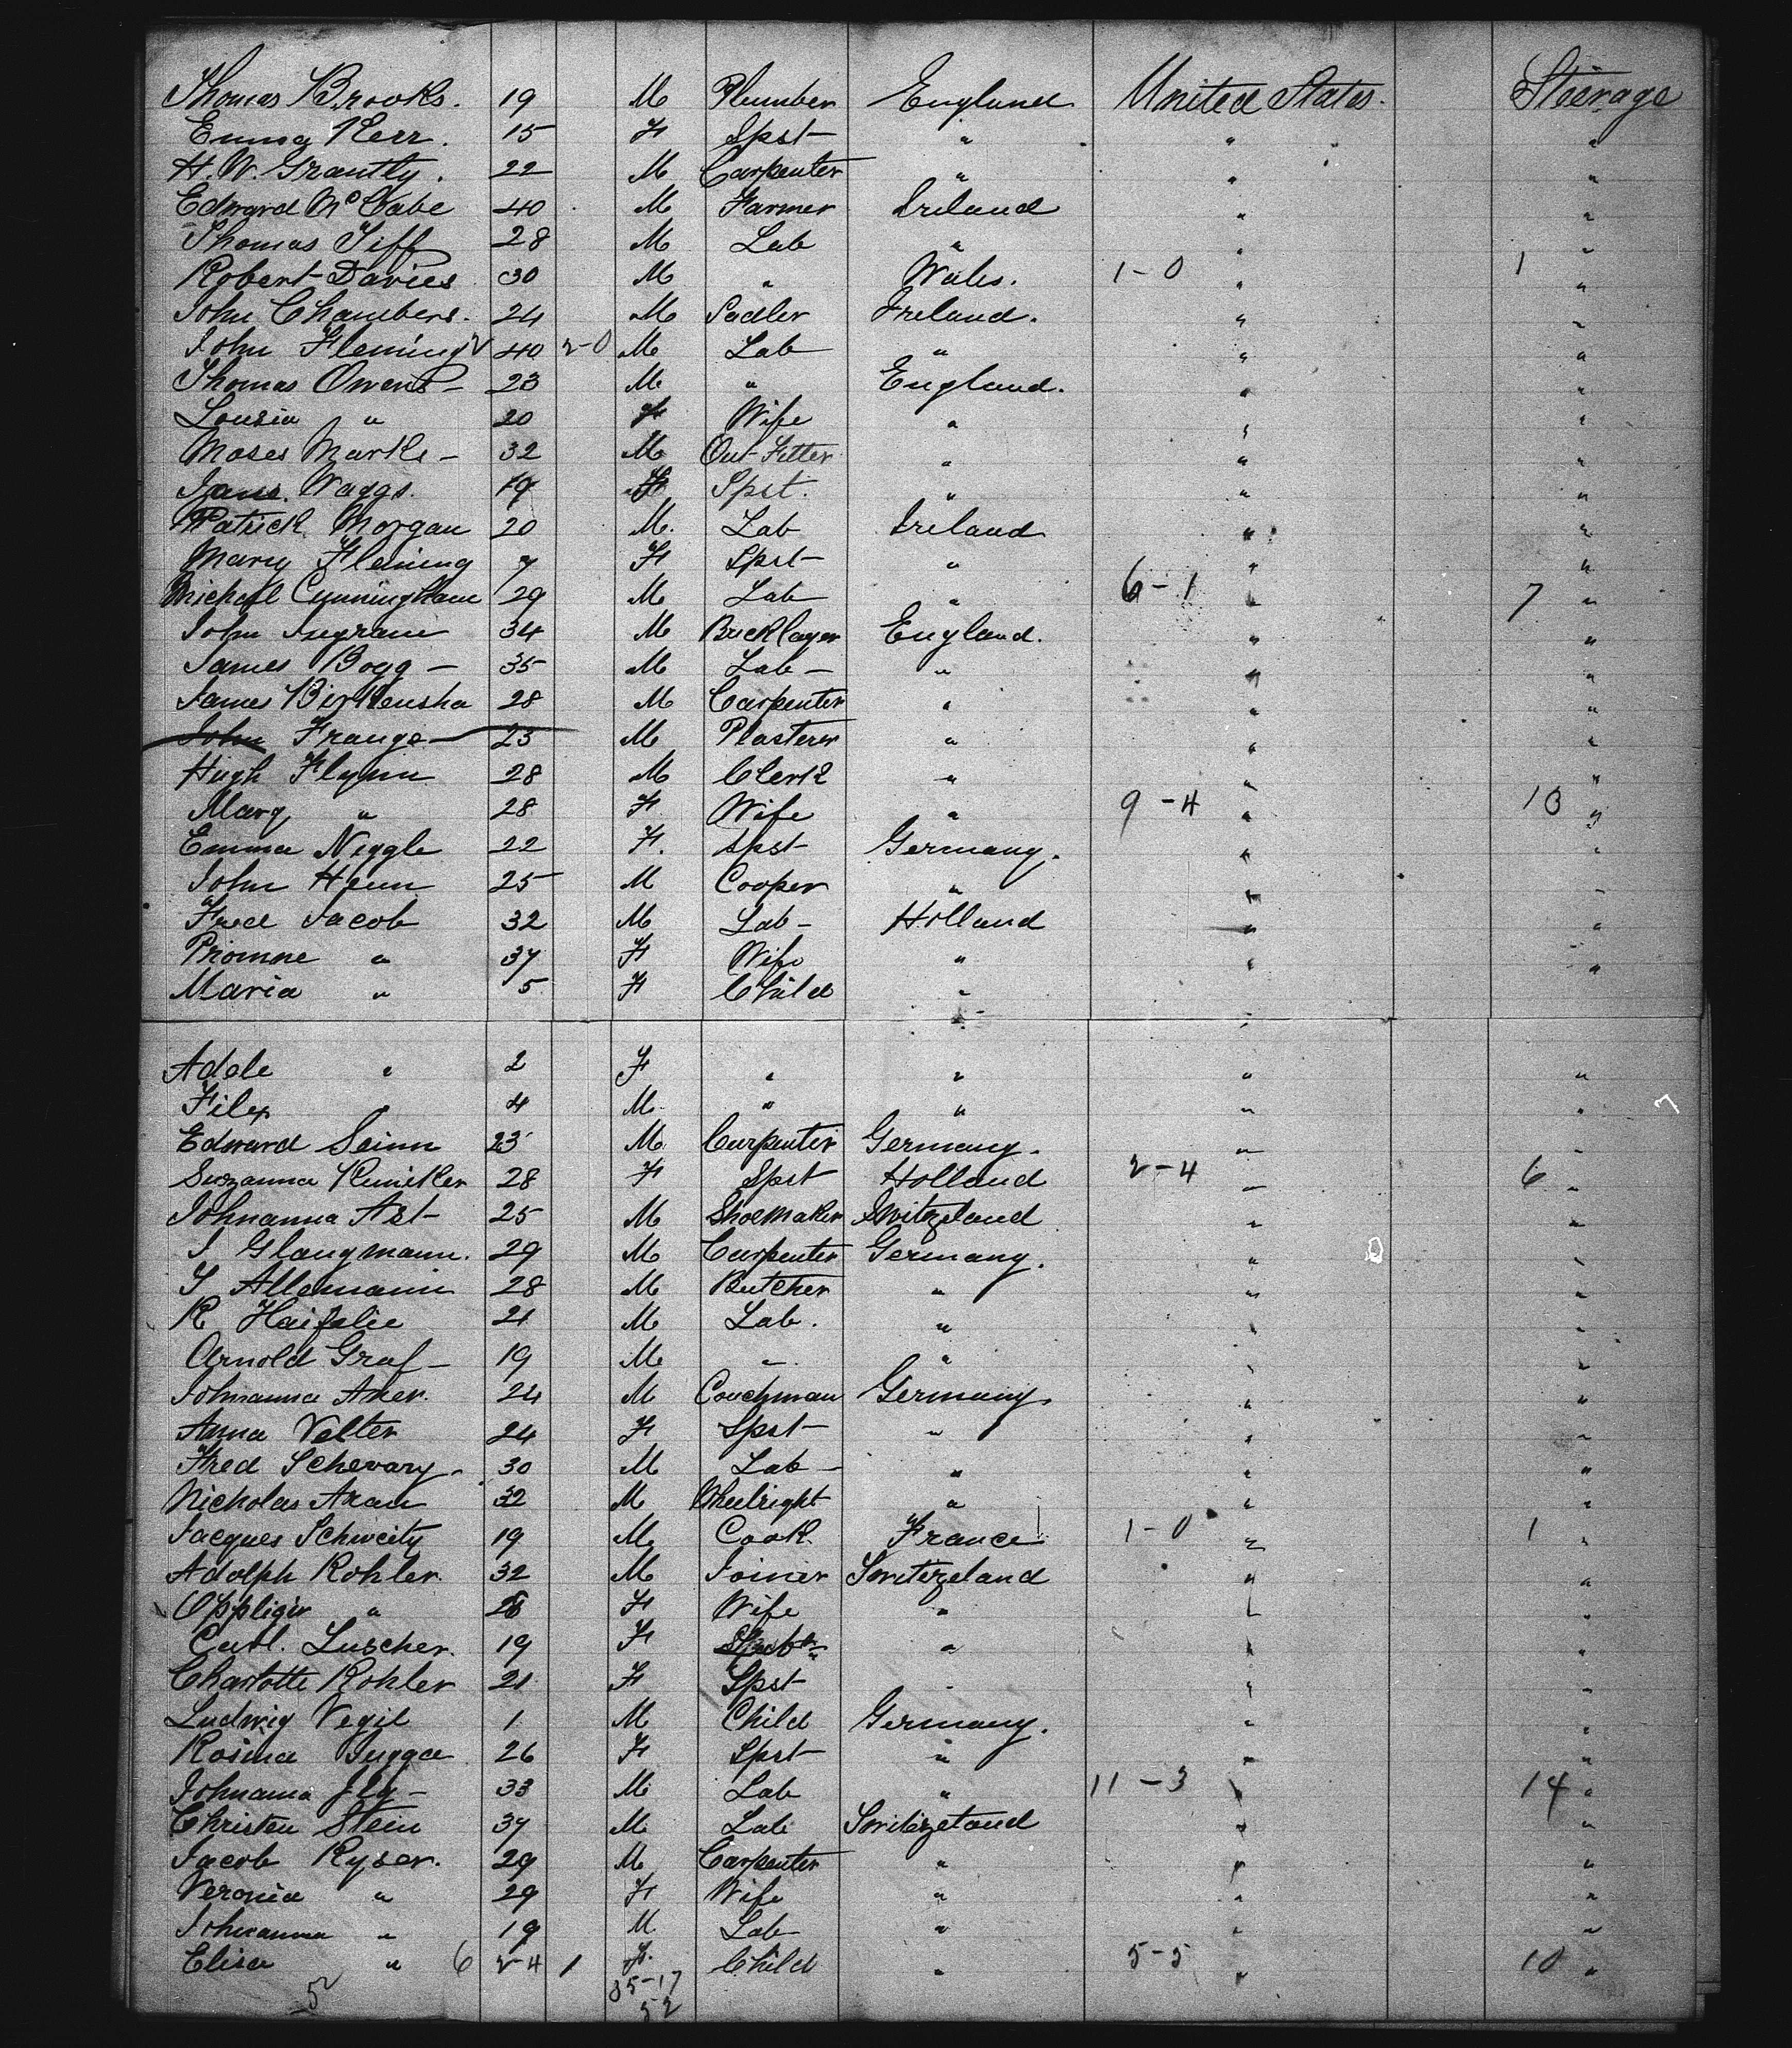 Thomas Brooks. 19 M Plumber England United States. Steerage
Emma Kerr. 15 F Spst " " "
H. W. Grantly. 22 M Carpenter " " "
Edward McCabe 40 M Farmer Ireland " "
Thomas Tiff 28 M Lab " " "
Robert Davies 30 M " Wales. 1-0 " 1 "
John Chambers. 24 M Sadler Ireland. " "
John Fleming 40 2-0 M Lab " " "
Thomas Owens 23 M " England. " "
Lousia " 20 F Wife " " "
Moses Marks 32 M Out Fitter " " "
Jane Waggs. 19 F Spst. " " "
Patrick Morgan 20 M. Lab Ireland " "
Mary Fleming 7 F Spst " " "
Michael Cunningham 29 M Lab " 6-1 " 7 "
John Ingram 34 M Bricklayer England. " "
James Bogg 35 M Lab " " "
James Birkensha 28 M Carpenter " " "
John Frange 23 M Plasterer " " "
Hugh Flynn 28 M Clerk " " "
Mary " 28 F Wife " 9-4 " 13 "
Emma Niggle 22 F. Spst Germany. " "
John Henn 25 M Cooper " " "
Fred Jacob 32 M Lab Holland " "
Promne " 37 F Wife " " "
Maria " 5 F Child "
Adele " 2 F " " " "
Filex " 4 M " " " "
Edward Seinn 23 M Carpenter Germany. " "
Suszanna Kuniker 28 F Spst Holland 2-4 " 6 "
Johnanna Ast 25 M Shoemaker Switzeland " "
J Glaugmann. 29 M Carpenter Germany. " "
S Allemann 28 M Butcher " " "
R Haifelie 21 M Lab. " " "
Arnold Graf 19 M " " " "
Johnanna Aker. 24 M Coachman Germany. " "
Anna Velter 24 F Spst " " "
Fred Schevary 30 M Lab " " "
Nicholas Aran 32 M Wheelright " " "
Jacques Schweity 19 M Cook France 1-0 " 1 "
Adolph Kohler 32 M Joiner Switzeland " "
Oppliger " 28 F Wife " " "
Carl. Luscher. 19 F " " "
Charlotte Kohler 21 F Spst " " "
Ludwig Vegil 1 M Child Germany. " "
Rosina Gugga 26 F Spst " " "
Johnanna Jly 33 M Lab " 11-3 " 14 "
Christen Stein 37 M Lab Switzeland " "
Jacob Ryser. 29 M Carpenter " " "
Veronia " 29 F Wife " " "
Johnanna " 19 M Lab " " "
Elisa " 6 2-4 1 F. Child " 5-5 " 10 "
52 35-17
52